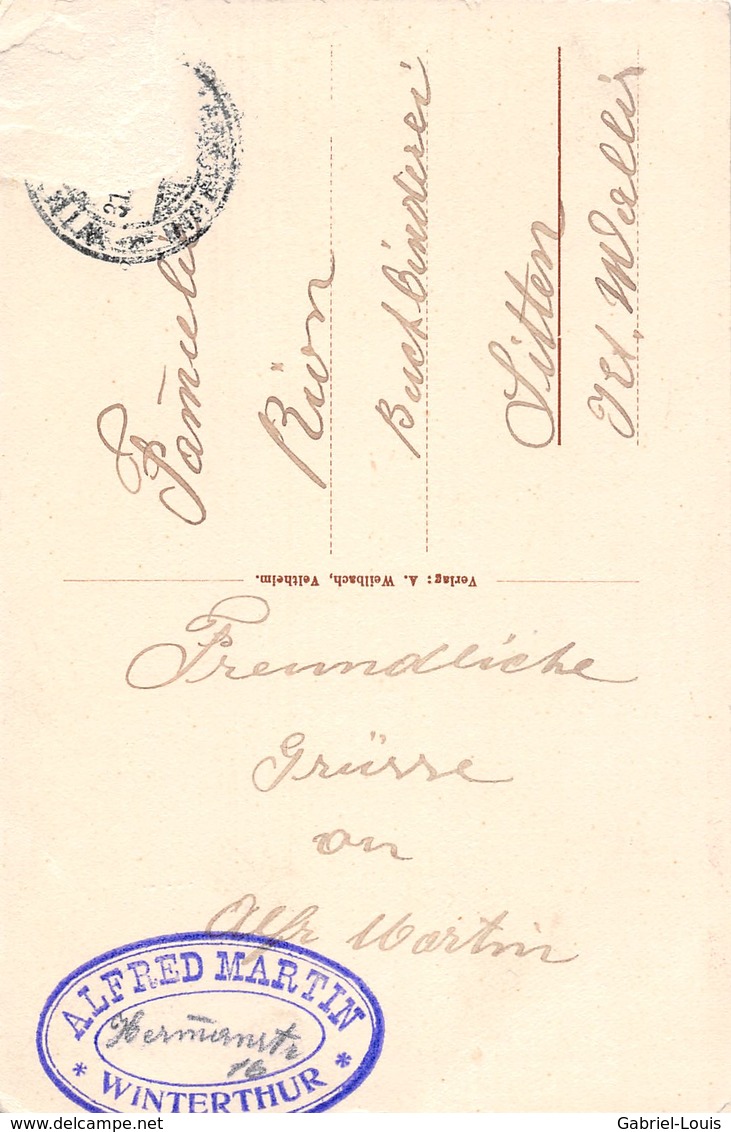 Familie
Rüon
Buchbinderei
Sitten
Kt. Wallis
Verlag: A. Weilbach, Veltheim.
Freundliche
Grüsse
on
Alfr Martin
ALFRED MARTIN
Hermanstr
16
* WINTERTHUR *
Gabriel-Louis